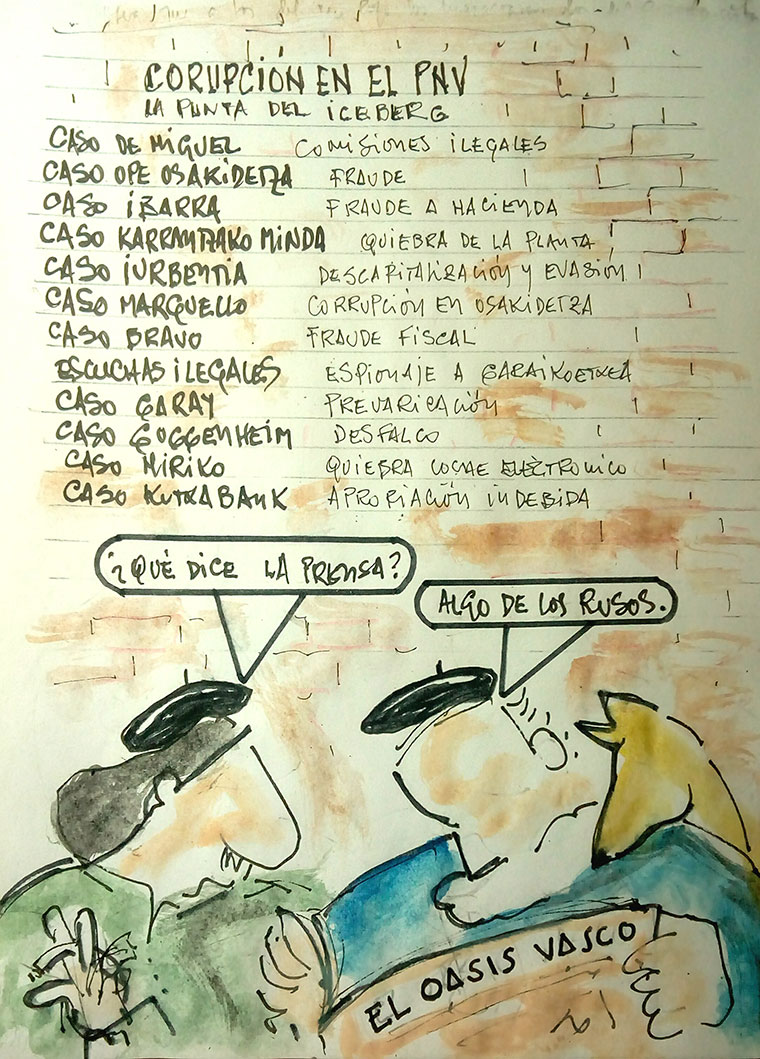 CORUPCIÓN EN EL PNV
LA PUNTA DEL ICEBERG
CASO DE MIGUEL COMISIONES ILEGALES
CASO OPE OSAKIDETZA FRAUDE
CASO IBARRA FRAUDE A HACIENDA
CASO KARRANTZAKO MINDA QUIEBRA DE LA PLANTA
CASO IURBENTIA DESCAPITALIZACIÓN Y EVASIÓN
CASO MARGUELLO CORRUPCIÓN EN OSAKIDETZA
CASO BRAVO FRAUDE FISCAL
ESCUCHAS ILEGALES ESPIONAJE A GARAIKOETXEA
CASO GARAY PREVARICACIÓN
CASO GUGGENHEIM DESFALCO
CASO HIRIKO QUIEBRA COCHE ELECTRONICO
CASO KUTXABANK APROPIACIÓN INDEBIDA
¿QUÉ DICE LA PRENSA?
ALGO DE LOS RUSOS.
EL OASIS VASCO